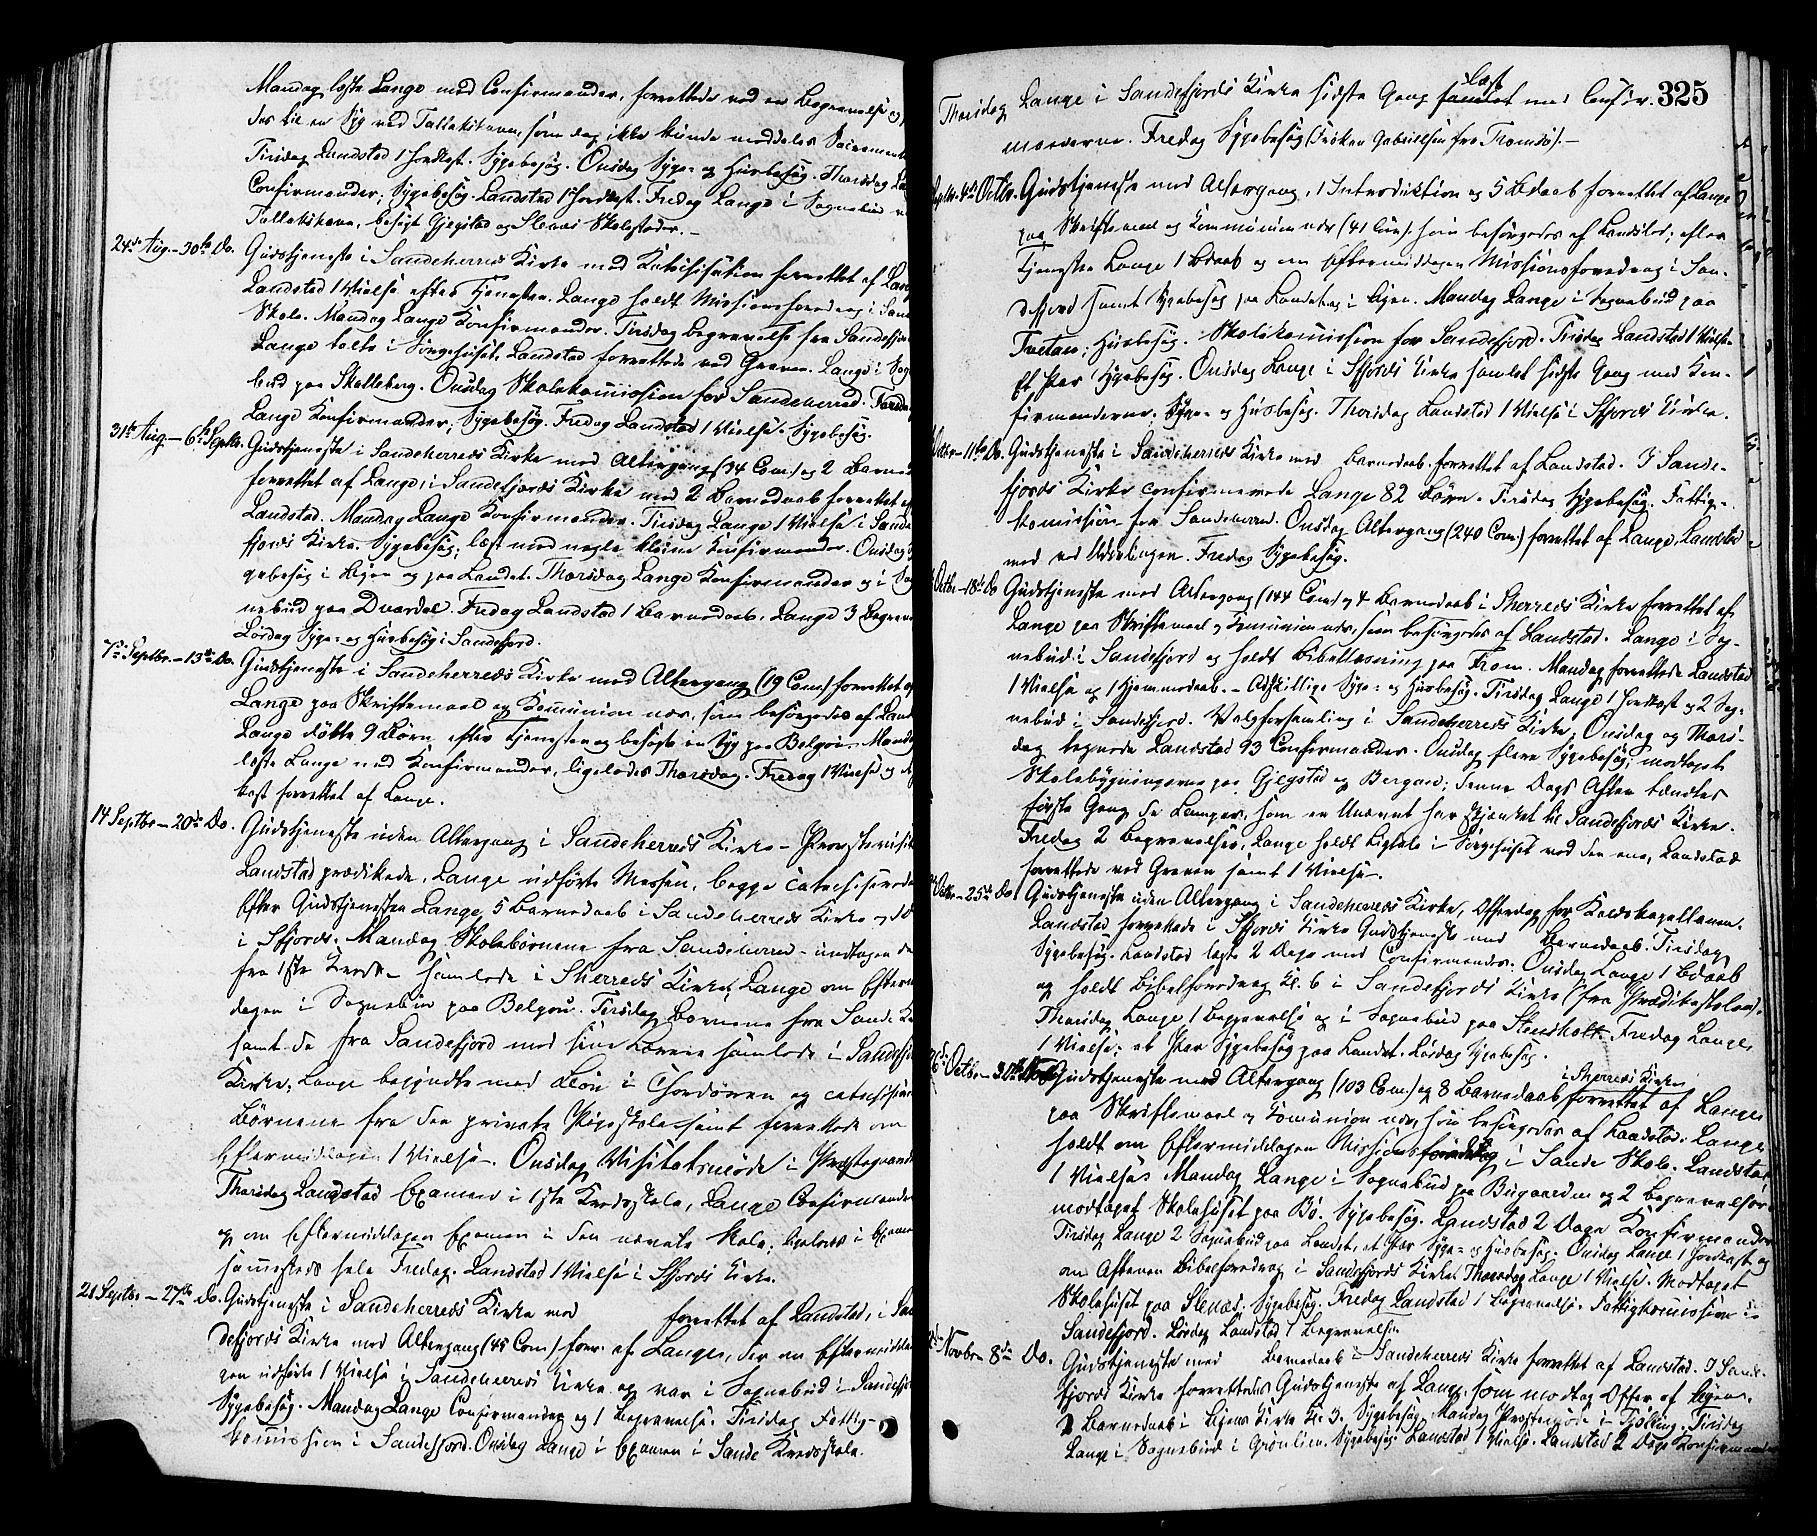 Mandag læste Lange med Confirmander, forrettede ved en Begravelse og
des til en Syg ved Tallakshavn, som dog ikke kunde meddeles Sacramentet
Tirsdag Landstad 1 Jordkast. Sygebesøg. Onsdag Syge- og Husbesøg. Thorsdag
Confirmander, Sygebesøg. Landstad 1 Jordkast. Fredag Lange i Sognebud
Tallakshavn, besøgt Gjegstad og Slenæs Skolesteder.
24de Aug. - 30te Do. Gudstjeneste i Sandeherreds Kirke med Katechisation forrettet af Lange
Landstad 1 Vielse efter Tjenesten. Lange holdt Missionsforedrag i Sande
Skole. Mandag Lange Konfirmander. Tirsdag Begravelse fra Sandefjord
Lange talte i Sørgehuset, Landstad forrettede ved Graven. Lange i Sogne
bud paa Skolleberg. Onsdag Skolekommission for Sandeherred. Torsdag
Lange Konfirmander, Sygebesøg. Fredag Landstad 1 Vielse. Sygebesøg.
31te Aug. - 6te Septbr. Gudstjeneste i Sandeherreds Kirke med Altergang (14 Com.) og 2 Barnedaab
forrettet af Lange, i Sandefjords Kirke med 2 Barnedaab forrettet af
Landstad. Mandag Lange Konfirmander. Tirsdag Lange 1 Vielse i Sande
fjords Kirke. Sygebesøg; læst med nogle kleine Konfirmander. Onsdag Sy
gebesøg i Byen og paa Landet. Thorsdag Lange Konfirmander og i Sog
nebud paa Dverdal. Fredag Landstad 1 Barnedaab, Lange 3 Begravelser
Lørdag Syge- og Husbesøg i Sandefjord.
7de Septbr. - 13de Do. Gudstjeneste i Sandeherreds Kirke med Altergang (19 Com) forrettet af
Lange paa Skriftemaal og Kommunion nær, som besørgedes af Landstad
Lange døbte 9 Børn efter Tjenesten og besøgte en Syg paa Belgøe. Mandag
læste Lange med Konfirmander, ligeledes Thorsdag. Fredag 1 Vielse og Jord
kast forrettet af Lange.
14 Septbr - 20de Do. Gudstjeneste uden Altergang i Sandeherreds Kirke - Provstevisitats
Landstad prædikede, Lange udførte Messen, begge catechiserede
Efter Gudstjenesten Lange 5 Barnedaab i Sandeherreds Kirke og 10
i Sfjords. Mandag Skolebørnene fra Sandeherred - undtagen de
fra 1ste Kreds - samlede i Sherreds Kirke, Lange om Efterm
dagen i Sognebud paa Belgøe. Tirsdag Børnene fra Sande K
samt de fra Sandefjord med sine Lærere samlede i Sandefjords
Kirke; Lange begyndte med Bøn i Chordøren og catechiserede
Børnene fra den private Pigeskole samt forrettede om
Eftermiddagen 1 Vielse. Onsdag Visitatsmøde i Præstegaarden
Thorsdag Landstad Examen i 1ste Kredsskole, Lange Confirmander
og om Eftermiddagen Examen i den nævnte Skole, ligeledes i Examen
sammesteds hele Fredag. Landstad 1 Vielse i Sfjords Kirke.
21 Septbr. - 27de Do. Gudstjeneste i Sandeherreds Kirke med forrettet af Landstad, i San
defjords Kirke med Altergang (48 Com) forr. af Lange, der om Eftermidda
gen udførte 1 Vielse i Sandeherreds Kirke og var i Sognebud i Sandefjord
Sygebesøg. Mandag Lange Confirmander og 1 Begravelse. Tirsdag Fattig-
kommission i Sandefjord. Onsdag Lange i Examen i Sande Kredsskole.
325
Thorsdag Lange i Sandefjords Kirke sidste Gang samlet læst med Confir-
manderne. Fredag Sygebesøg (Frøken Gabrielsen fra Tromsø). -
Septbr. 4de Octbr. Gudstjeneste med Altergang, 1 Introduktion og 5 Bdaab forrettet af Lange
paa Skriftemaal og Kommunion nær (41 Com). som besørgedes af Landstad; efter
Tjenesten Lange 1 Bdaab og om Eftermiddagen Missionsforedrag i San-
defjord samt Sygebesøg paa Landet og i Byen. Mandag Lange i Sognebud paa
Fretan; Husbesøg. Skolekommission for Sandefjord. Tirsdag Landstad 1 Vielse.
Et Par Sygebesøg. Onsdag Lange i Sfjords Kirke samlet sidste Gang med Kon-
firmanderne. Syge- og Husbesøg. Thorsdag Landstad 1 Vielse i Sfjords Kirke.
Octbr - 11te Do. Gudstjeneste i Sandeherreds Kirke med Barnedaab forrettet af Landstad. I Sande-
fjords Kirke confirmerede Lange 82 Børn. Tirsdag Sygebesøg. Fattig-
kommission for Sandeherred. Onsdag Altergang (240 Com) forrettet af Lange, Landstad
med ved Uddelingen. Fredag Sygebesøg.
Octbr - 18de Do Gudstjeneste med Altergang (144 Com) og 4 Barnedaab i Sherreds Kirke forrettet af
Lange paa Skriftemaal og Communion nær, som besørgedes af Landstad. Lange i Sog-
nebud i Sandefjord og holdt Bibellæsning paa Fram. Mandag forrettede Landstad
1 Vielse og 1 Hjemmedaab. - Adskillige Syge- og Husbesøg. Tirsdag Lange 1 Jordkast og 2 Sog-
nebud i Sandefjord. Valgforsamling i Sandeherreds Kirke. Onsdag og Thors-
dag tegnede Landstad 93 Confirmander. Onsdag flere Sygebesøg; modtaget
Skolebygningerne paa Gjegstad og Bergan; denne Dags Aften tændtes
første Gang de Lamper, som en Unævnt har skjænket til Sandefjords Kirke.
Fredag 2 Begravelser, Lange holdt Ligtale i Sørgehuset ved den ene, Landstad
forrettede ved Graven samt 1 Vielse.
Octbr - 25de Do Gudstjeneste uden Altergang i Sandeherreds Kirke, Offerdag for Residskapellanen.
Landstad forrettede i Sfjords Kirke Gudstjeneste med Barnedaab. Tirsdag
Sygebesøg. Landstad læste 2 Dage med Confirmander. Onsdag Lange 1 Bdaab
og holdt Bibelforedrag Kl. 6 i Sandefjords Kirke (fra Prædikestolen).
Thorsdag Lange 1 Begravelse og i Sognebud paa Stensholt. Fredag Lange
1 Vielse; et Par Sygebesøg paa Landet. Lørdag Sygebesøg.
i Sherreds Kirke
26de Octbr - Gudstjeneste med Altergang (103 Com) og 8 Barnedaab forrettet af Lange
paa Skriftemaal og Komunion nær, som besørgedes af Landstad. Lange
holdt om Eftermiddagen Missionsforedrag i Sande Skole. Landstad
1 Vielse. Mandag Lange i Sognebud paa Bugaarden og 2 Begravelser
modtaget Skolehuset paa Bø. Sygebesøg. Landstad 2 Dage Konfirmander
Tirsdag Lange 2 Sognebud paa Landet, et Par Syge- og Husbesøg. Onsdag Lange 1 Jordkast og
om Aftenen Bibelforedrag i Sandefjords Kirke. Thorsdag Lange 1 Vielse. Modtaget
Skolehuset paa Slenæs. Sygebesøg. Fredag Landstad 1 Begravelse. Fattigkommission i
Sandefjord. Lørdag Landstad 1 Begravelse.
Novbr 8de Do. Gudstjeneste med Barnedaab i Sandeherreds Kirke forrettet af Landstad. I Sande-
fjords Kirke forrettedes Gudstjeneste af Lange, som modtog Offer af Byen.
2 Barnedaab i Byens Kirke Kl. 3. Sygebesøg. Mandag Præstemøde i Tjølling. Tirsdag
Lange i Sognebud i Grønlien. Sygebesøg. Landstad 1 Vielse. Landstad 2 Dage Konfirmander